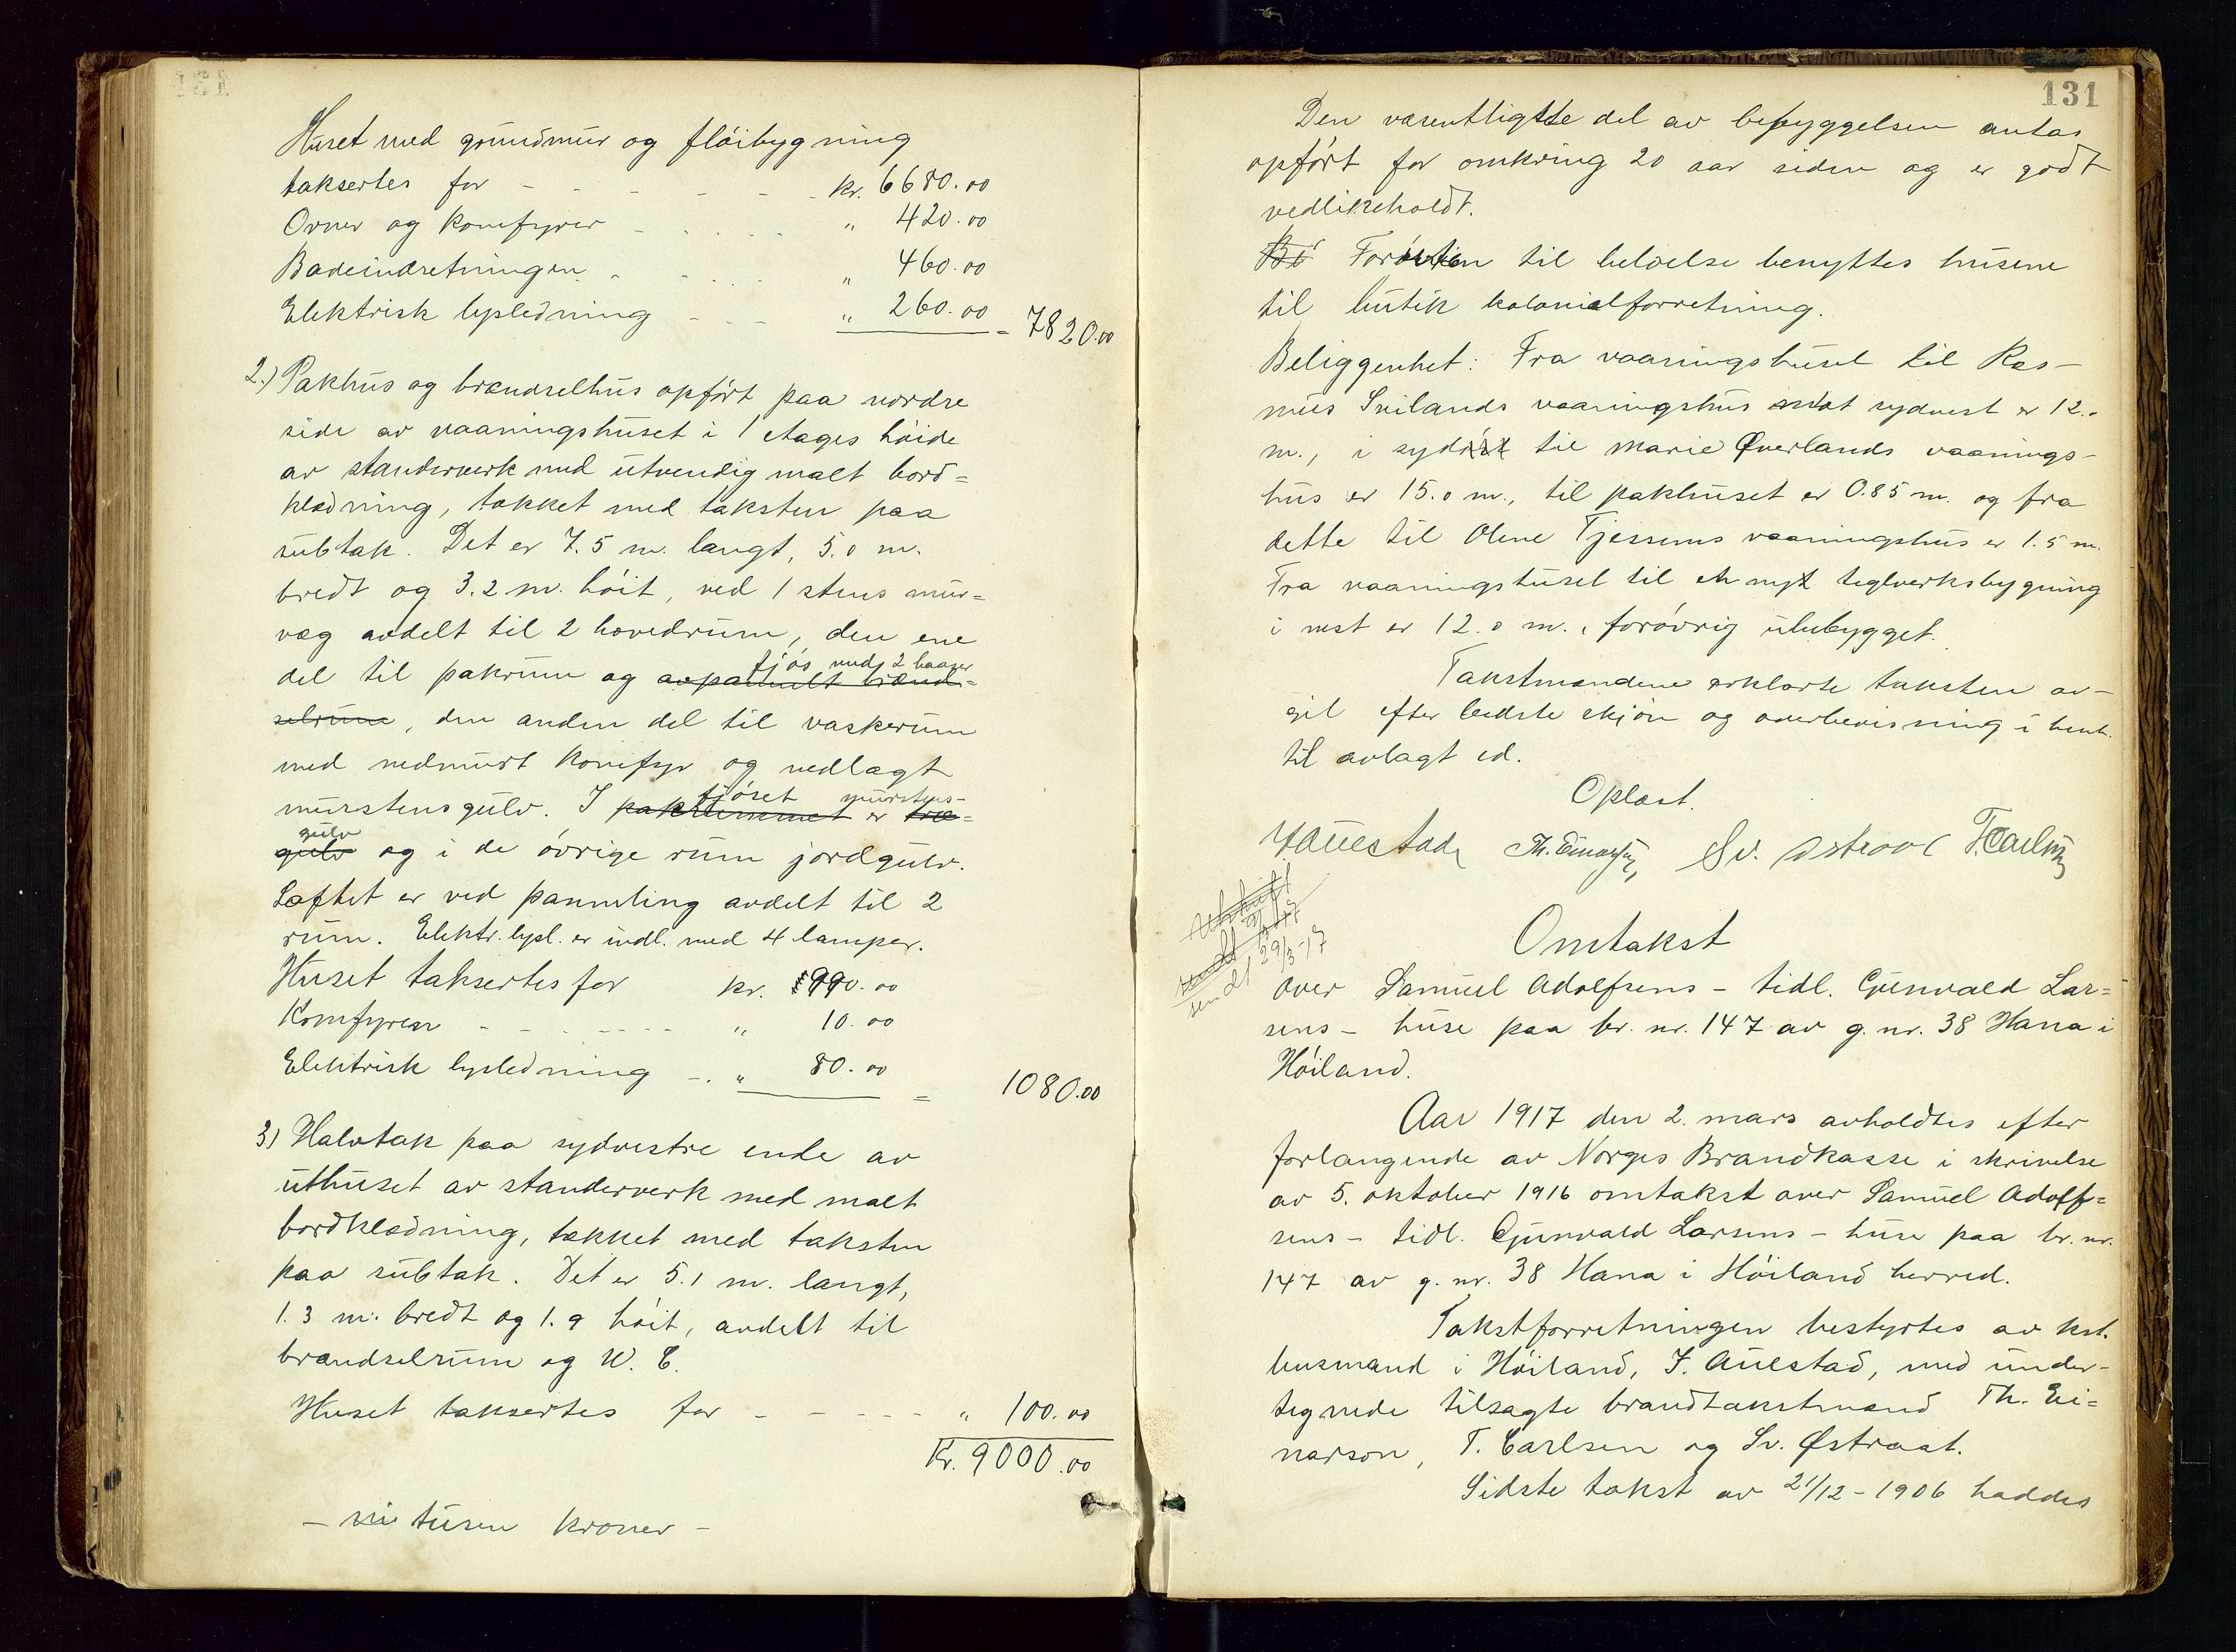 Huset med grundmur og fløibygning
taksertes for - - - - - - kr. 6680.00
Ovner og komfyrer - . . . . " 420.00
Badeindretningen - - . . . " 460.00
Elektrisk lysledning - - - " 260.00 = 7820.00
2.) Pakhus og brændselhus opført paa nordre
side av vaaningshuset i 1 etages høide
av standerverk med utvendig malt bord=
klædning, tækket med taksten paa
subtak. Det er 7.5 m. langt, 5.0 m.
bredt og 3.2 m. høit, ved 1 stens mur=
væg avdelt til 2 hovedrum, den ene
fjøs med 2 baaser
del til pakrum og avpanelt brænd=
selrum, den anden del til vaskerum
med nedmurt komfyr og nedlagt
fjøset murstens-
murstensgulv. I pakrummet er træ=
gulv
gulv og i de øvrige rum jordgulv.
Loftet er ved panneling avdelt til 2
rum. Elektr. lysl. er indl. med 4 lamper.
Huset taksertes for kr. 990.00
Komfyren - - - - - - - " 10.00
Elektrisk lysledning - . " 80.00 = 1080.00
3) Halvtak paa sydvestre ende av
uthuset av standerverk med malt
bordklædning, tækket med taksten
paa subtak. Det er 5.1 m. langt,
1.3 m. bredt og 1.9 høit, avdelt til
brændselrum og W. C.
Huset taksertes for - - - - - " 100.00
Kr. 9000.00
- ni tusen kroner -
131
Den væsentligste del av bebyggelsen antas
opført for omkring 20 aar siden og er godt
vedlikeholdt.
Be Foruten til beboelse benyttes husene
til butik kolonialforretning.
Beliggenhet: Fra vaaningshuset til Ras-
mus Snilands vaaningshus mot sydvest er 12.0
m., i sydøst til Marie Øverlands vaanings-
hus er 15.0 m., til pakhuset er 0.85 m. og fra
dette til Olene Tjessems vaaningshus er 1.5 m.
Fra vaaningshuset til en nyt teglverksbygning
i vest er 12.0 m., forøvrig ubebygget.
Takstmændene erklærte taksten av-
git efter bedste skjøn og overbevisning i henh.
til avlagt ed.
Oplæst.
J. Auestad Th. Einarson, Sv. Østraat T. Carlsen
Utskrift
sendt
sendt 29/3-17
Omtakst
over Samuel Adolfsens - tidl. Gunvald Lar=
sens - huse paa br. nr. 147 av g. nr. 38 Hana i
Høiland.
Aar 1917 den 2. mars avholdtes efter
forlangende av Norges Brandkasse i skrivelse
av 5. oktober 1916 omtakst over Samuel Adolf=
sens - tidl. Gunvald Larsens - huse paa br. nr.
147 av g. nr. 38 Hana i Høiland herred.
Takstforretningen bestyrtes av kst.
lensmand i Høiland, J. Auestad, med under-
tegnede tilsagte brandtakstmænd Th. Ei=
narson, T. Carlsen og Sv. Østraat.
Sidste takst av 21/12-1906 haddes